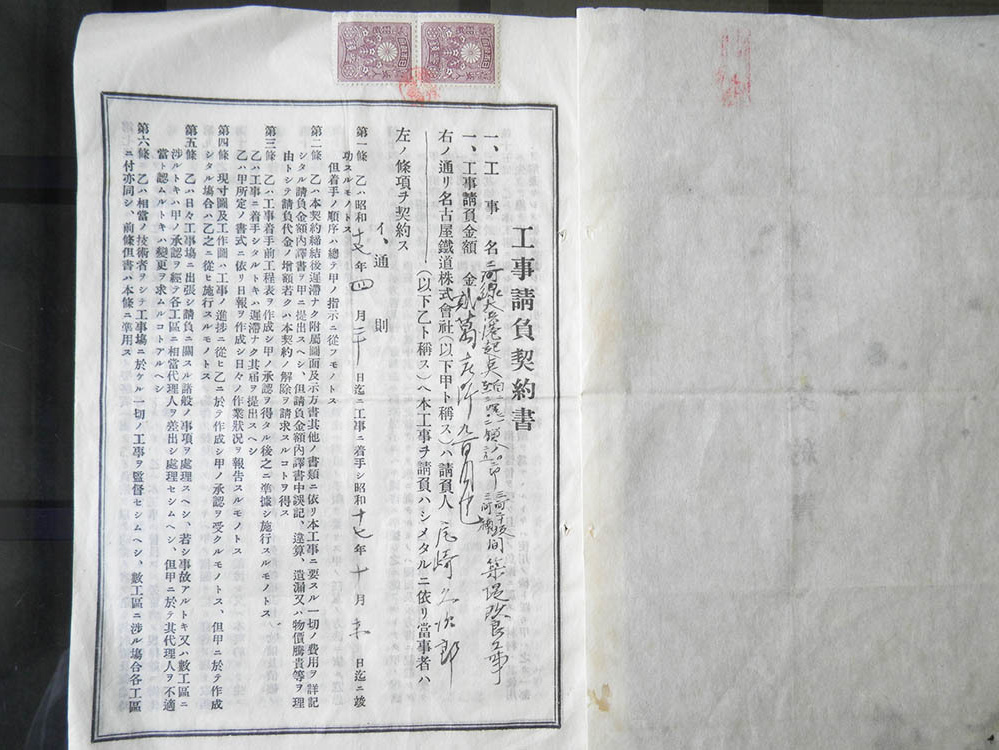 工事請負契約書
一、工事名
築堤改良工事
一、工事請負金額 金
右ノ通リ名古屋鐵道株式會社(以下甲ト稱ス)ハ請負人 尾崎久次郎
(以下乙ト稱ス)ヘ本工事ヲ請負ハシメタルニ依リ當事者ハ
左ノ條項ヲ契約ス
イ、通則
第一條 乙ハ昭和十七年四月二十日迄ニ工事ニ着手シ昭和十七年十月末日迄ニ竣
功スルモノトス
但着手ノ順序ハ總テ甲ノ指示ニ從フモノトス
第二條 乙ハ本契約締結後遲滯ナク附屬圖面及示方書其他ノ書類ニ依リ本工事ニ要スル一切ノ費用ヲ詳記
シタル請負金額內譯書ヲ甲ニ提出スヘシ、但請負金額內譯書中誤記、違算、遺漏又ハ物價騰貴等ヲ理
由トシテ請負代金ノ增額若クハ本契約ノ解除ヲ請求スルコトヲ得ス
第三條 乙ハ工事着手前工程表ヲ作成シ甲ノ承認ヲ得タル後之ニ準據シ施行スルモノトス
乙ハ工事ニ着手シタルトキハ遲滯ナク其屆ヲ提出スヘシ
乙ハ甲所定ノ書式ニ依リ日報ヲ作成シ日々ノ作業狀況ヲ報告スルモノトス
第四條 現寸圖及工作圖ハ工事ノ進捗ニ從ヒ乙ニ於テ作成シ甲ノ承認ヲ受クルモノトス、但甲ニ於テ作成
シタル場合ハ乙之ニ從ヒ施行スルモノトス
第五條 乙ハ日々工事場ニ出張シ請負ニ關スル諸般ノ事項ヲ處理スヘシ、若シ事故アルトキ又ハ數工區ニ
涉ルトキハ甲ノ承認ヲ經テ各工區ニ相當代理人ヲ差出シ處理セシムヘシ、但甲ニ於テ其代理人ヲ不適
當ト認ムルトキハ變更ヲ求ムルコトアルヘシ
第六條 乙ハ相當ノ技術者ヲシテ工事場ニ於ケル一切ノ工事ヲ監督セシムヘシ、數工區ニ涉ル場合各工區
ニ付亦同シ、前條但書ハ本條ニ準用ス